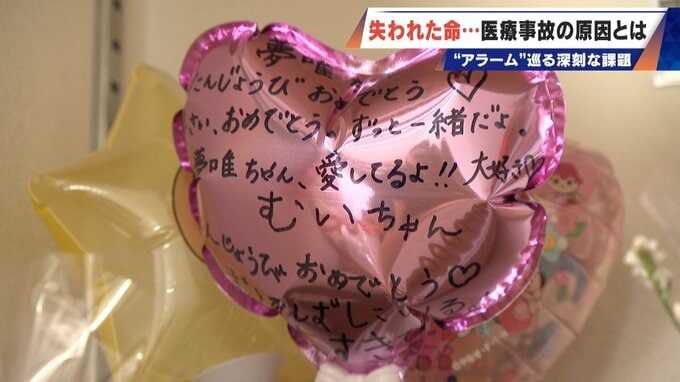 失われた命…医療事故の原因とは
“アラーム”巡る深刻な課題
夢唯
たんじょうび おめでとう♡
さい、おめでとう。ずっと一緒だよ。
夢唯ちゃん、愛してるよ!! 大好き♡
むいちゃん
んじょうび おめでとう♡